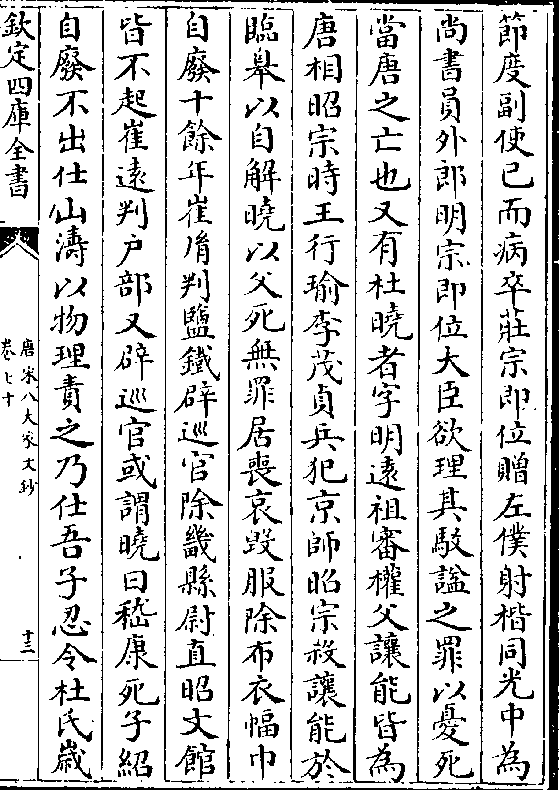 節度副使已而病卒莊宗即位贈左僕射楷同光中為
尚書員外郎明宗即位大臣欲理其駮謚之罪以憂死
當唐之亡也又有杜曉者字明遠祖審權父讓能皆為
唐相昭宗時王行瑜李茂貞兵犯京師昭宗殺讓能於
臨臯以自解曉以父死無罪居喪哀毁服除布衣幅巾
自廢十餘年崔𦙍判鹽鐵辟巡官除畿縣尉直昭文館
皆不起崔逺判户部又辟巡官或謂曉曰嵇康死子紹
自廢不出仕山濤以物理責之乃仕吾子忍令杜氏嵗
欽定四庫全書
唐宋八大家文鈔
卷七十
十三